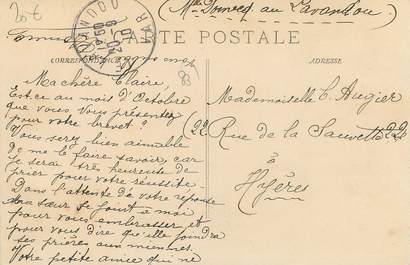 20 €
(Mlle Domerq au Lavandou)
CARTE POSTALE
CORRESPONDANCE
ADRESSE
VAR
83
Ma chère Claire,
Est-ce au mois d'Octobre
que vous vous présentez
pour votre brevet?
Vous serez bien aimable
de me le faire savoir, car
je serai très heureuse de
prier pour votre réussite.
Dans l'attente de votre réponse
ma sœur se joint à moi
pour vous embrasser et
pour vous dire qu'elle joindra
ses prières aux miennes.
Votre petite amie qui ne
Mademoiselle C. Augier
22 Rue de la Sauvette 22
à
Hyères